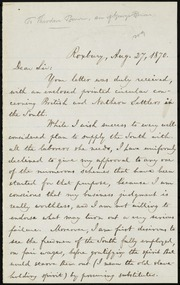 Roxbury, Aug. 27, 1870.
Dear Sir:
Your letter was duly received,
with an enclosed printed circular con-
cerning British and Northern Settlers in
the South.
While I wish success to any well-
considered plan to supply the South with
all the laborers she needs, I have uniformly
declined to give my approval to any one
of the numerous schemes that have been
started for that purpose, because I am
conscious that my business judgment is
really worthless, and I am not willing to
endorse what may turn out a very serious
failure. Moreover, I am first desirous to
see the freemen of the South fully employed,
on fair wages, before gratifying the spirit that
would starve them out (I mean the old slave-
holding spirit) by procuring substitutes.